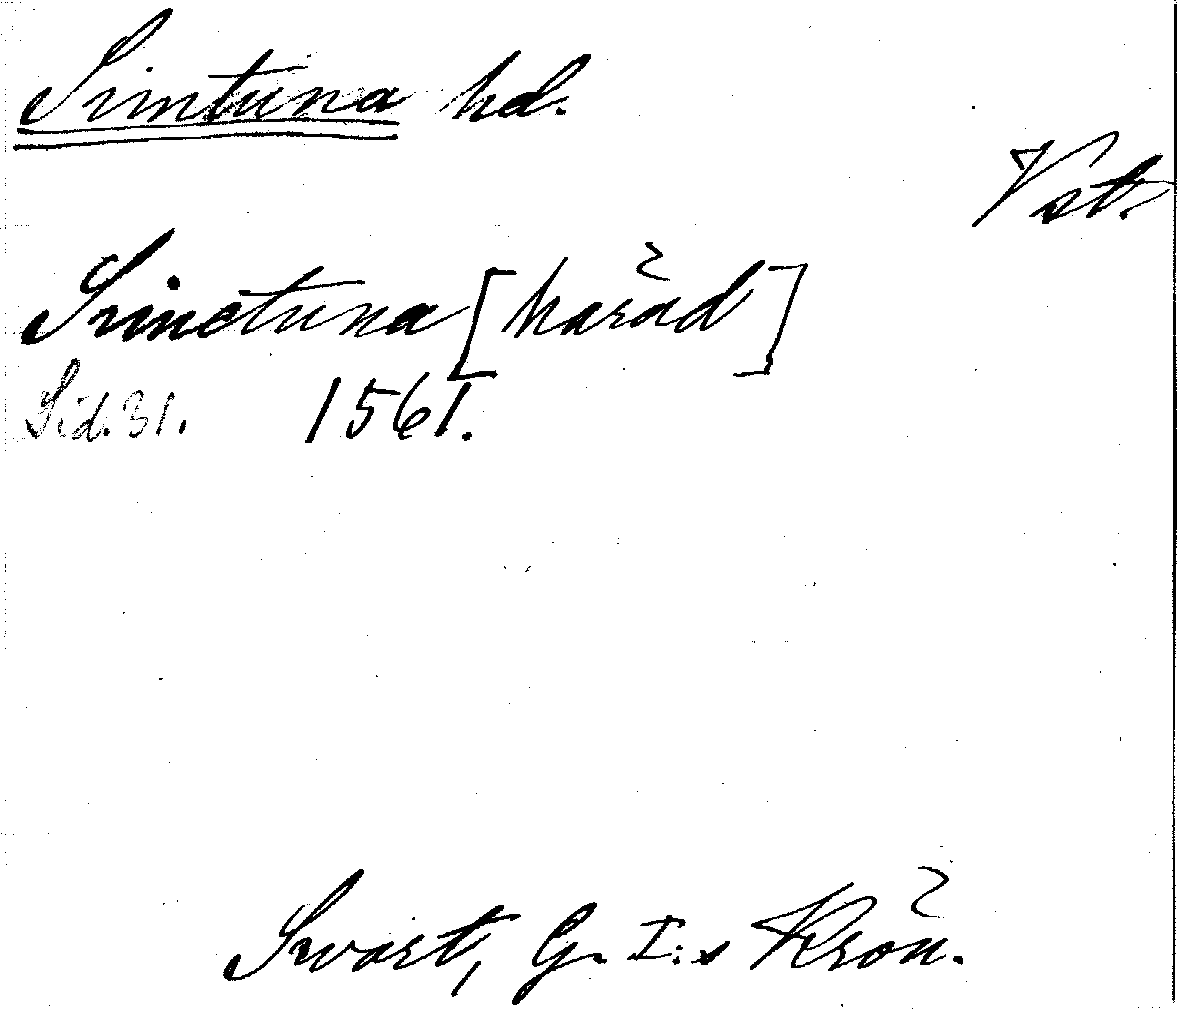 Simtuna hd.
Vst.
Simetuna [härad]
Sid. 31. 1561.
Svart, G. I:s Krön.